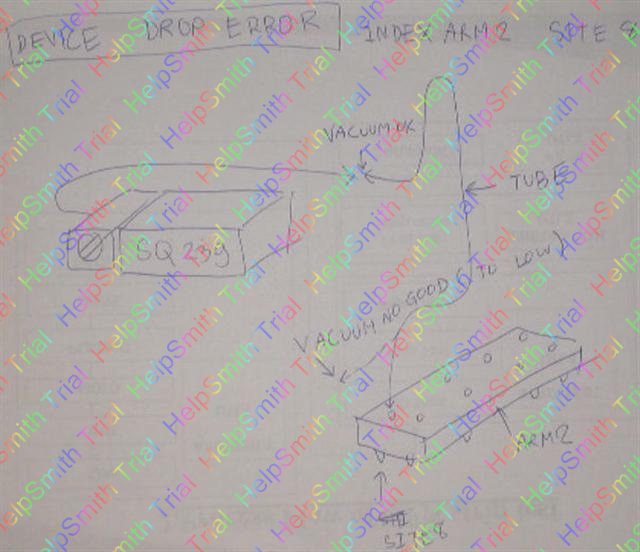 DEVICE DROP ERROR INDEX ARM2 SITE 8
VACUUM OK
TUBE
SQ 239
VACUUM NO GOOD (TO LOW)
ARM2
SITE 8
HelpSmith Trial